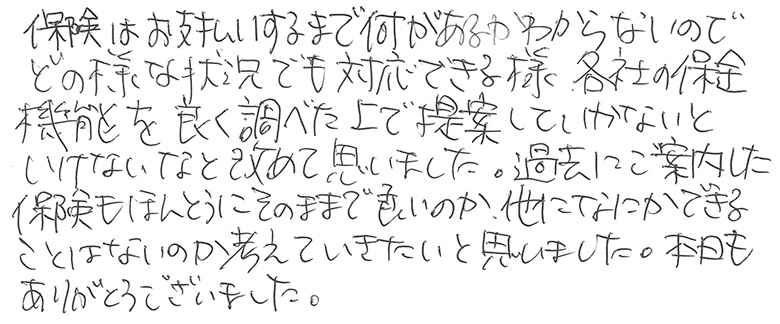 保険はお支払いするまで何があるかわからないので
どの様な状況でも対応できる様 各社の保全
機能を良く調べた上で提案していかないと
いけないなと改めて思いました。過去にご案内した
保険もほんとうにそのままで良いのか、他になにかできる
ことはないのか考えていきたいと思いました。本日も
ありがとうございました。